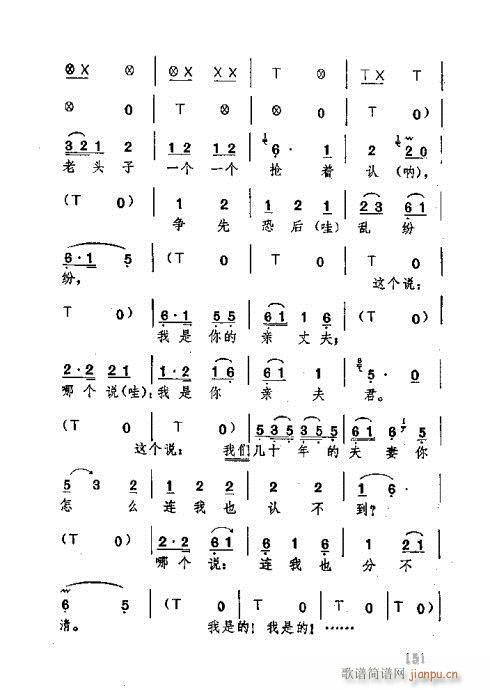 ⊗X ⊗ | ⊗X XX | T ⊗ | TX T
⊗ 0 | T ⊗ | ⊗ 0 | T 0)
321 2 | 12 12 | 6· 1 | 2 20
老头子 一个一个 抢着 认(呐),
(T 0) | 1 2 | 2 1 2 | 23 61
争先 恐后(哇)乱纷
6·1 5 | (T 0 | T 0 | T 0
纷, 这个说:
T 0) | 6·1 55 | 61 1 6 | (T 0)
我是你的亲丈夫;
2·2 21 | 1·2 6 | 61 2 | 5· 0
哪个说(哇):我是你 亲夫 君。
(T 0 | T 0) | 535 355 | 61 5
这个说: 我们几十年的夫妻你
5 3 2 | 1 2 2 | 2 2 2 | 1 6·
怎么 连我也 认不 到?
(T 0) | 2·2 61 | 6 1 6 | 1 21
哪个说: 连我也 分不
6 5 | (T 0 | T 0 | T 0)
清。 我是的! 我是的! ……
151
歌谱简谱网
jianpu.cn